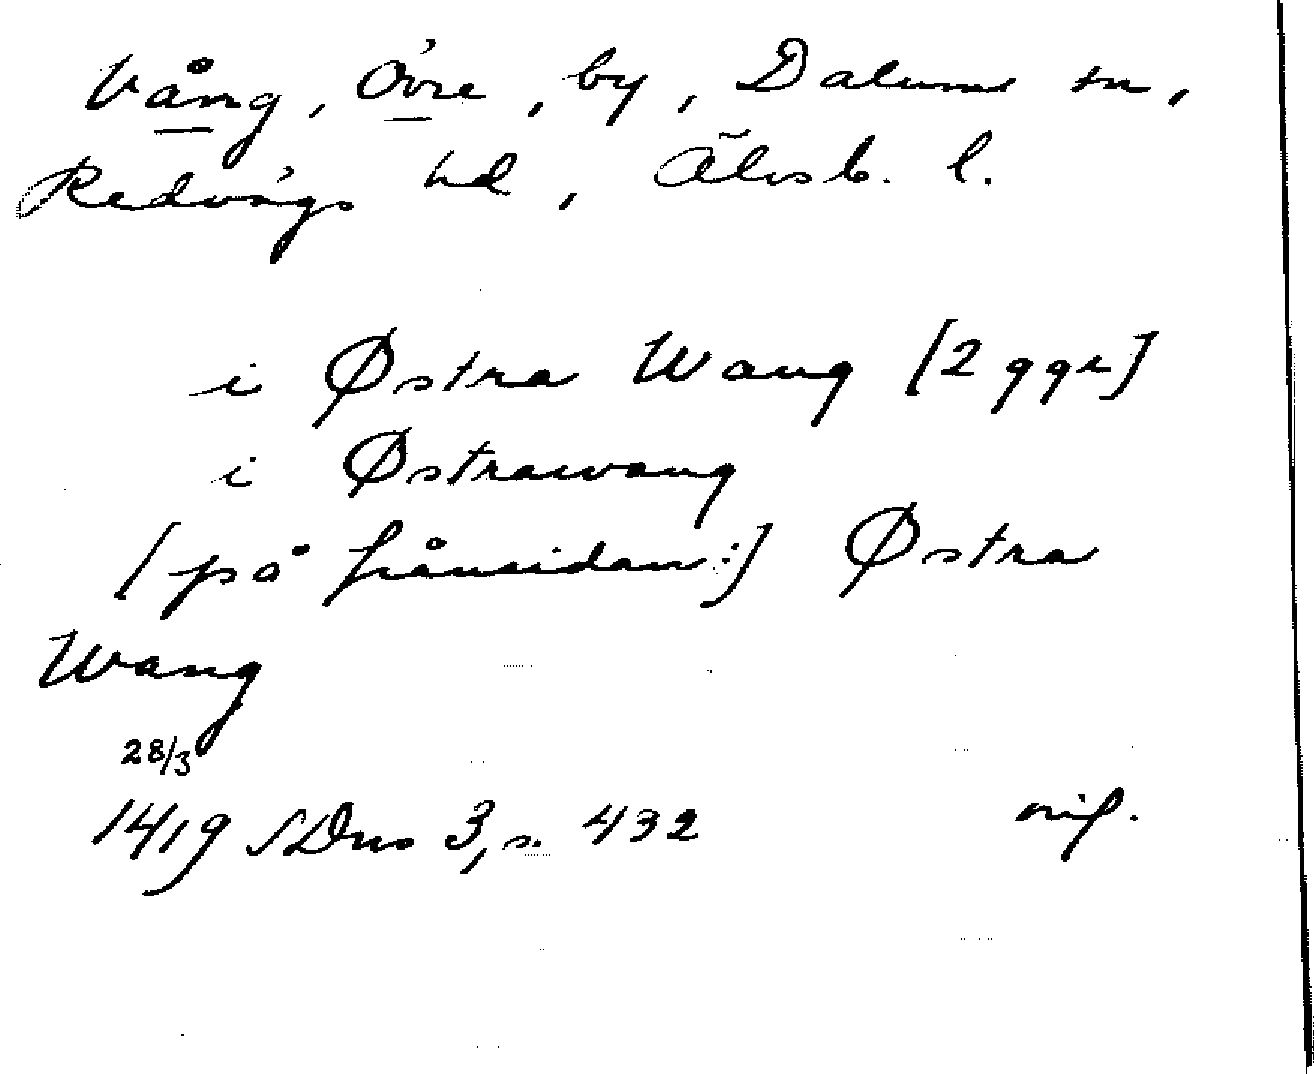 Vång, Övre, by, Dalums sn,
Redvägs hd, Älvsb. l.
i Østra Wang [2 ggr]
i Østrawang
[på frånsidan:] Østra
Wang
28/3
1419 SDns 3, s. 432 orig.